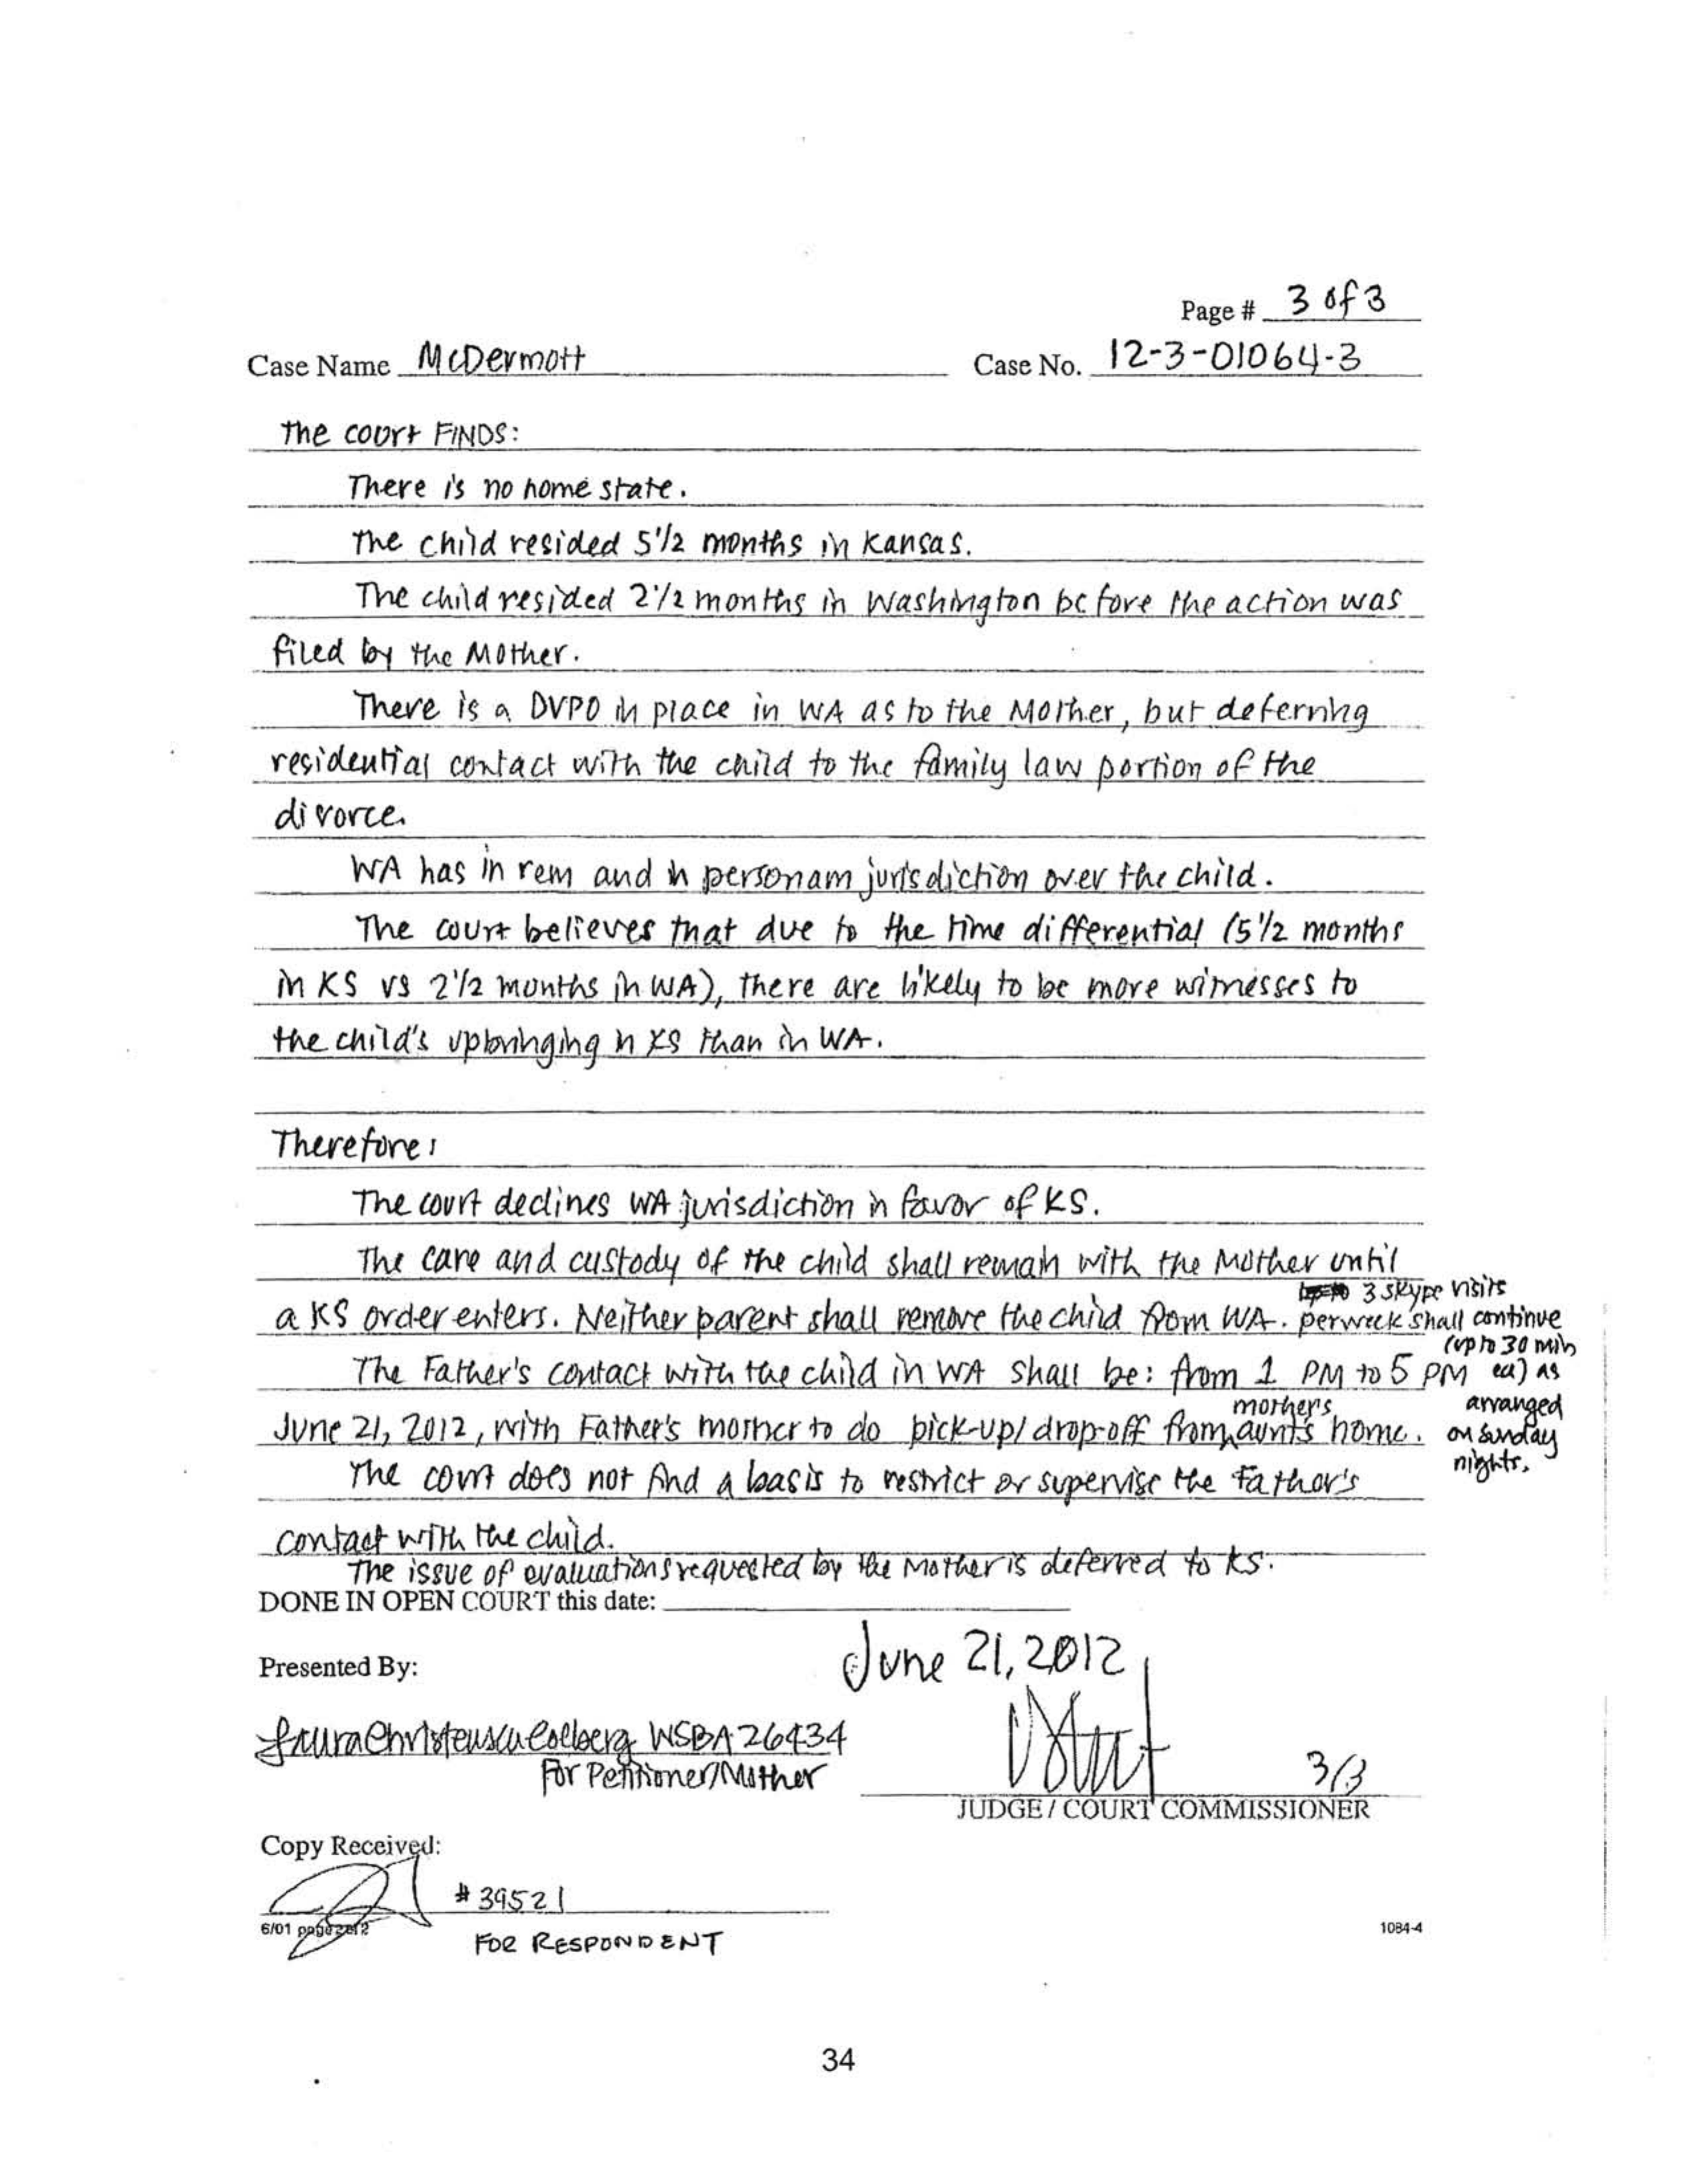 Page # 3 of 3
Case Name McDermott Case No. 12-3-01064-3
The court FINDS:
There is no home state.
The child resided 5 1/2 months in Kansas.
The child resided 2 1/2 months in Washington before the action was
filed by the Mother.
There is a DVPO in place in WA as to the Mother, but deferring
residential contact with the child to the family law portion of the
divorce.
WA has in rem and in personam jurisdiction over the child.
The court believes that due to the time differential (5 1/2 months
in KS vs 2 1/2 months in WA), there are likely to be more witnesses to
the child's upbringing in KS than in WA.
Therefore:
The court declines WA jurisdiction in favor of KS.
The care and custody of the child shall remain with the Mother until
a KS order enters. Neither parent shall remove the child from WA. 3 skype visits
per week shall continue
(up to 30 min
ea) as
arranged
on Sunday
nights.
The Father's contact with the child in WA shall be: from 1 PM to 5 PM
June 21, 2012, with Father's mother to do pick-up/drop-off from mother's aunt's home.
The court does not find a basis to restrict or supervise the Father's
contact with the child.
The issue of evaluations requested by the Mother is deferred to KS.
DONE IN OPEN COURT this date:
June 21, 2012
Presented By:
Laura Christensen Colberg WSBA 26434
For Petitioner/Mother
3/3
JUDGE / COURT COMMISSIONER
Copy Received:
# 39521
6/01 page 2 of 2
FOR RESPONDENT
1084-4
34